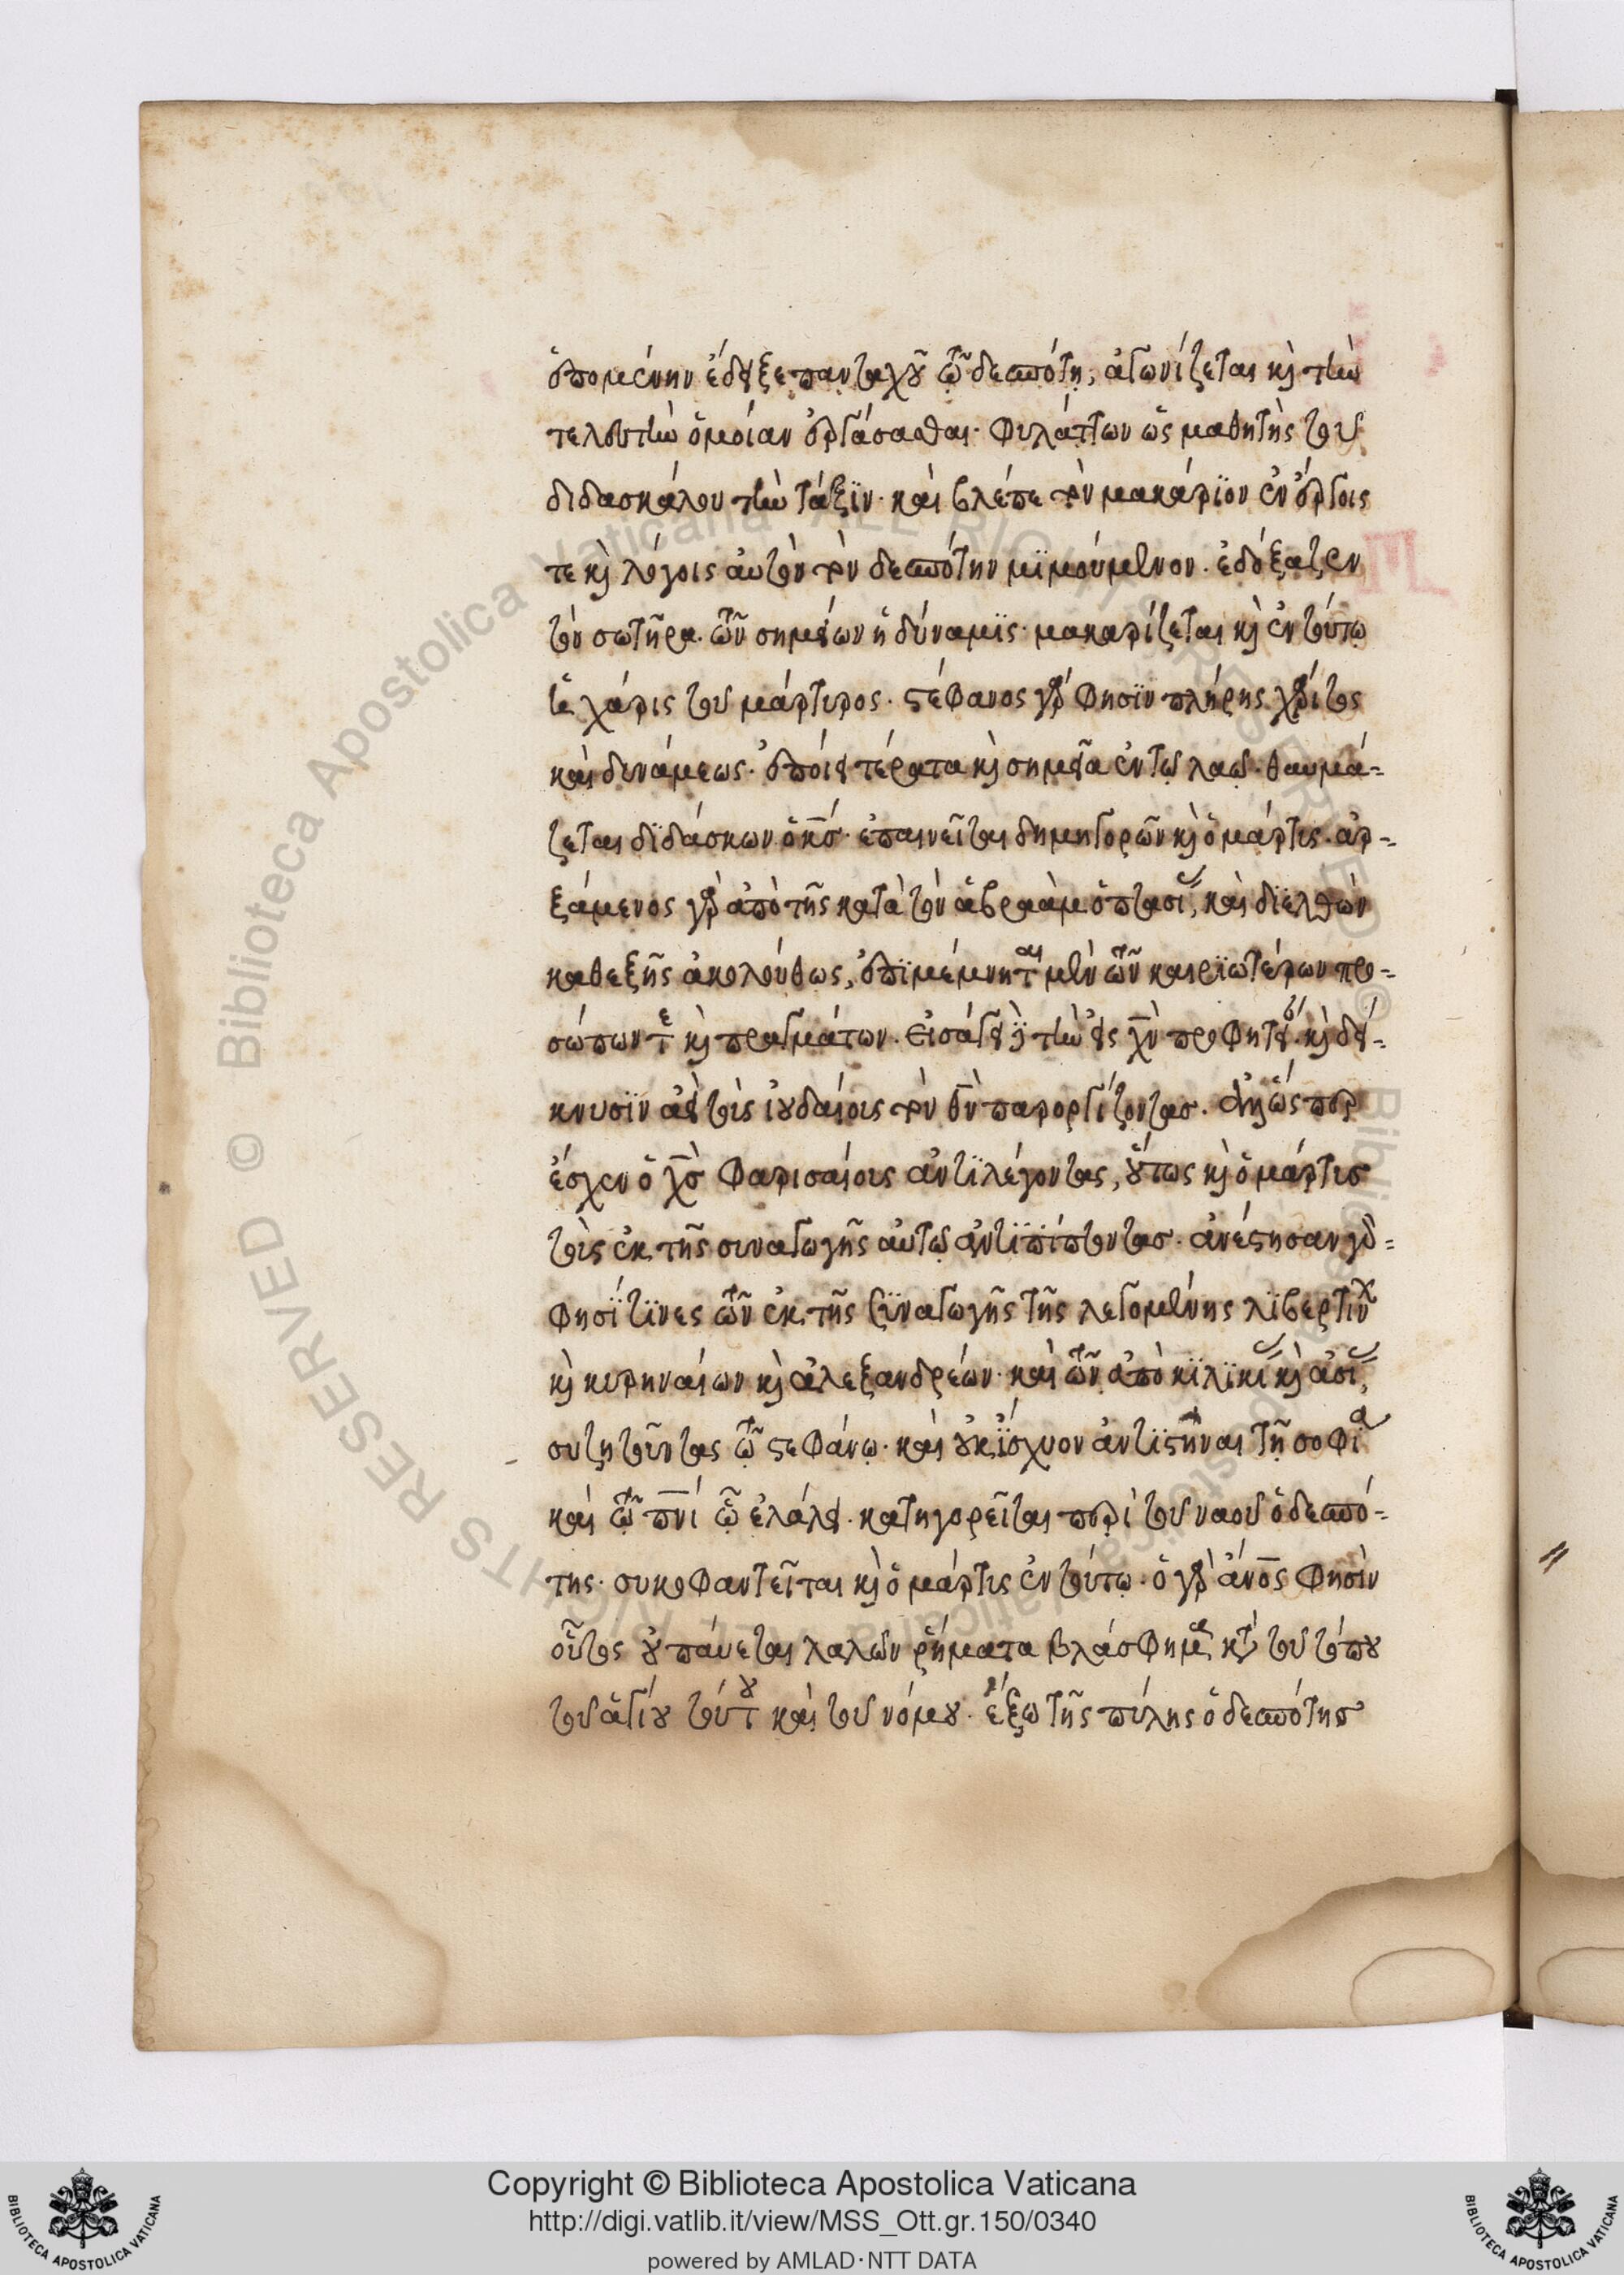 ἑπομένην ἔδειξε πανταχοῦ τῷ δεσπότῃ, ἀγωνίζεται κὶ τὴν
τελευτὴν ὁμοίαν ἐργάσασθαι· φυλάττων ὡς μαθητὴς τοῦ
διδασκάλου τὴν τάξϊν· καὶ βλέπε τὸν μακάρϊον ἐν ἔργοις
τε κὶ λόγοις αὐτὸν τὸν δεσπότην μϊμούμενον. ἐδόξαζεν
τὸν σωτῆρα. τῶν σημείων ἡ δύναμϊς· μακαρίζεται κὶ ἐν τούτω
ἡ χάρις τοῦ μάρτυρος· στέφανος γὰρ φησῒν πλήρης χάριτος
καὶ δυνάμεως· ἐποίει τέρατα κὶ σημεῖα ἐν τῷ λαῷ· θαυμά-
ζεται δϊδάσκων ὁ κσ· ἐπαινεῖται δημηγορῶν κὶ ὁ μάρτυς. ἀρ-
ξάμενος γὰρ ἀπὸ τῆς κατὰ τὸν ἀβραὰμ ὀπτασΐας, καὶ διελθὼν
καθεξῆς ἀκολούθως, ἐπϊμέμνηται μὲν τῶν καιρϊωτέρων προ-
σώπων τε κὶ πραγμάτων. εἰσάγει δὲ τὴν εἰς χν προφητείαν κὶ δεί-
κνυσϊν ἀεὶ τοὺς ἰουδαίους τὸν θν παροργίζοντας. ἀλλ' ὥσπερ
ἔσχεν ὁ χσ φαρισαίους ἀντϊλέγοντας, οὕτως κὶ ὁ μάρτυς
τοὺς ἐκ τῆς συναγωγῆς αὐτῷ ἀντϊπΐπτοντας. ἀνέστησαν γὰρ
φησΐ τϊνες τῶν ἐκ τῆς συναγωγῆς τῆς λεγομένης λϊβερτίνων
κὶ κυρηναίων κὶ ἀλεξανδρέων· καὶ τῶν ἀπὸ κϊλϊκΐας κὶ ἀσΐας,
συζητοῦντας τῷ στεφάνῳ· καὶ οὐκ ἴσχυον ἀντϊστῆναι τῇ σοφίᾳ
καὶ τῷ πνι ᾧ ἐλάλει. κατηγορεῖται περὶ τοῦ ναοῦ ὁ δεσπό-
της· συκοφαντεῖται κὶ ὁ μάρτυς ἐν τούτω· ὁ γὰρ ἄνος φησὶν
οὗτος οὐ παύεται λαλῶν ῥήματα βλάσφημα κατὰ τοῦ τόπου
τοῦ ἁγίου τούτου καὶ τοῦ νόμου. ἔξω τῆς πύλης ὁ δεσπότης
Copyright © Biblioteca Apostolica Vaticana
http://digi.vatlib.it/view/MSS_Ott.gr.150/0340
powered by AMLAD·NTT DATA